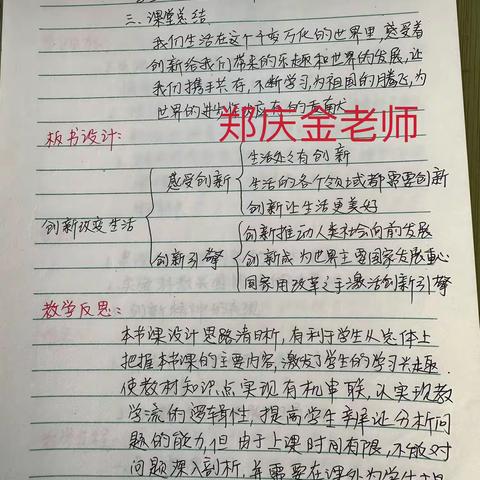 三、课堂总结
我们生活在这个千变万化的世界里,感受着
创新给我们带来的乐趣和世界的发展,让
我们携手共存,不断学习,为祖国的腾飞,为
世界的进步应有的贡献
郑庆金老师
板书设计:
生活处处有创新
感受创新
生活的各个领域都需要创新
创新让生活更美好
创新改变生活
创新推动人类社会向前发展
创新引擎
创新成为世界主要国家发展重心
国家用改革之手激活创新引擎
教学反思:
本书课设计思路清晰,有利于学生从总体上
把握本书课的主要内容,激发了学生的学习兴趣.
使教材知识点实现有机串联,以实现教
学流的逻辑性,提高学生辨认分析问
题的能力,但由于上课时间有限,不能对
问题深入剖析,并需要在课外为学生